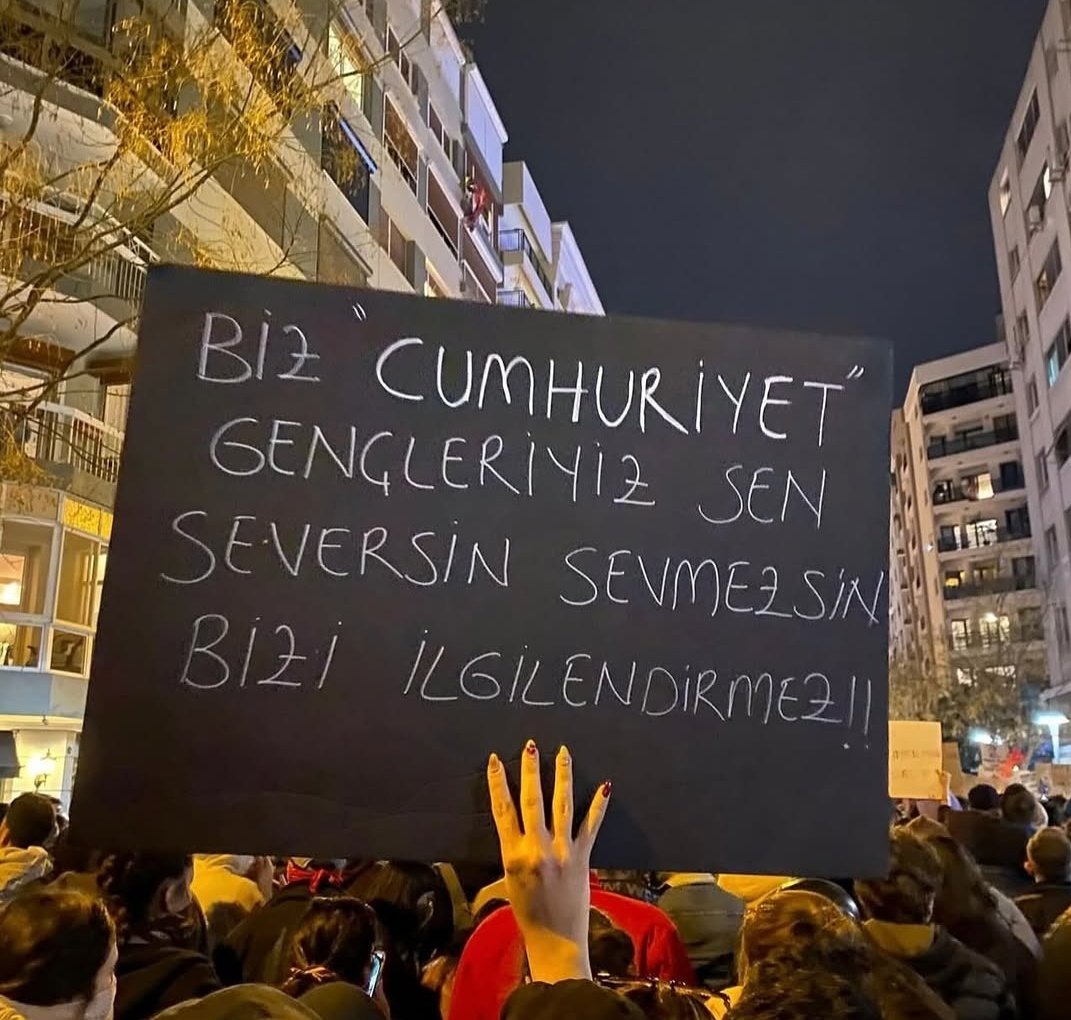 BİZ "CUMHURİYET"
GENÇLERİYİZ SEN
SEVERSİN SEVMEZSİN
BİZİ İLGİLENDİRMEZ!!